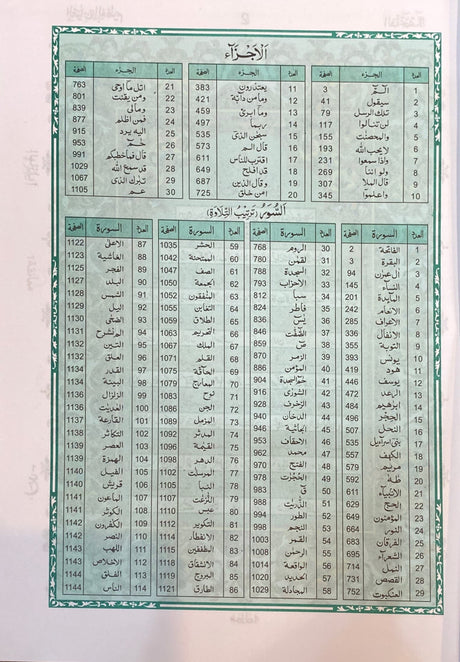 الاجزآء
العدد الجزء الصفحة
1 الٓمّٓ 3
2 سيقول 41
3 تلك الرسل 79
4 لن تنالوا 117
5 والمحصنت 155
6 لايحب الله 193
7 واذا سمعوا 231
8 ولو اننا 269
9 قال الملا 307
10 واعلموا 345
العدد الجزء الصفحة
11 يعتذرون 383
12 وما من دآبة 421
13 وما ابرئ 459
14 ربما 497
15 سبحن الذى 535
16 قال الم 573
17 اقترب للناس 611
18 قد افلح 649
19 وقال الذين 687
20 امن خلق 725
العدد الجزء الصفحة
21 اتل ما اوحى 763
22 ومن يقنت 801
23 ومالى 839
24 فمن اظلم 877
25 اليه يرد 915
26 حٰمٓ 953
27 قال فماخطبكم 991
28 قد سمع الله 1029
29 تبرك الذى 1067
30 عم 1105
السور (ترتيب التلاوة)
العدد السورة الصفحة
1 الفاتحة 2
2 البقرة 3
3 ال عمرٰن 94
4 النسآء 145
5 المآئدة 201
6 الانعام 242
7 الاعراف 285
8 الانفال 336
9 التوبة 355
10 يونس 393
11 هود 419
12 يوسف 441
13 الرعد 472
14 ابرٰهيم 484
15 الحجر 496
16 النحل 507
17 بنى اسرآئيل 535
18 الكهف 557
19 مريم 577
20 طٰهٰ 592
21 الانبيآء 611
22 الحج 629
23 المؤمنون 649
24 النور 664
25 الفرقان 685
26 الشعرآء 695
27 النمل 714
28 القصص 731
29 العنكبوت 752
العدد السورة الصفحة
30 الروم 768
31 لقمٰن 780
32 السجدة 788
33 الاحزاب 793
34 سبا 812
35 فاطر 824
36 يٰسٓ 836
37 الصّٰفّٰت 846
38 صٓ 859
39 الزمر 870
40 المؤمن 887
41 حٰمٓ السجدة 904
42 الشورٰى 916
43 الزخرف 928
44 الدخان 940
45 الجاثية 946
46 الاحقاف 953
47 محمد 962
48 الفتح 970
49 الحجرٰت 978
50 قٓ 983
51 الذّٰريٰت 988
52 الطور 994
53 النجم 998
54 القمر 1003
55 الرحمٰن 1008
56 الواقعة 1014
57 الحديد 1020
58 المجادلة 1029
العدد السورة الصفحة
59 الحشر 1035
60 الممتحنة 1042
61 الصف 1047
62 الجمعة 1050
63 المنٰفقون 1052
64 التغابن 1055
65 الطلاق 1059
66 التحريم 1063
67 الملك 1067
68 القلم 1071
69 الحآقة 1075
70 المعارج 1079
71 نوح 1083
72 الجن 1086
73 المزمل 1089
74 المدثر 1092
75 القيٰمة 1096
76 الدهر 1098
77 المرسلٰت 1102
78 النبا 1105
79 النّٰزعٰت 1107
80 عبس 1110
81 التكوير 1112
82 الانفطار 1114
83 المطففين 1115
84 الانشقاق 1118
85 البروج 1119
86 الطارق 1121
العدد السورة الصفحة
87 الاعلٰى 1122
88 الغاشية 1123
89 الفجر 1125
90 البلد 1127
91 الشمس 1128
92 اليل 1129
93 الضحٰى 1130
94 المنشرح 1131
95 التين 1132
96 العلق 1132
97 القدر 1134
98 البينة 1134
99 الزلزال 1136
100 العٰديٰت 1136
101 القارعة 1137
102 التكاثر 1138
103 العصر 1139
104 الهمزة 1139
105 الفيل 1140
106 قريش 1140
107 الماعون 1141
108 الكوثر 1141
109 الكٰفرون 1142
110 النصر 1142
111 اللهب 1143
112 الاخلاص 1143
113 الفلق 1144
114 الناس 1144